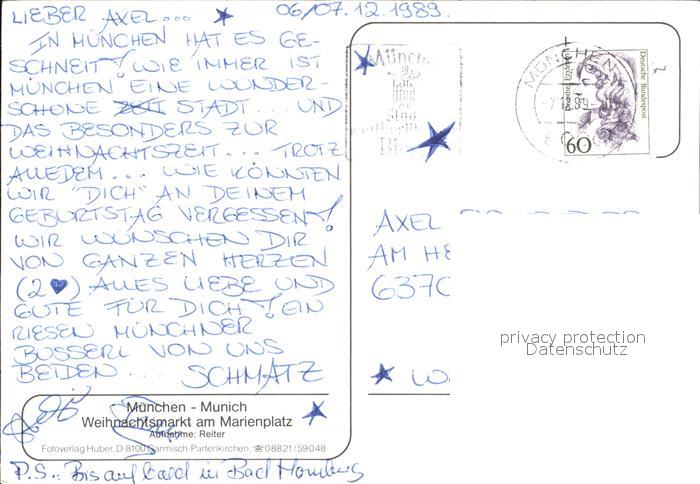 06/07.12.1989.
LIEBER AXEL...
IN MÜNCHEN HAT ES GE-
SCHNEIT! WIE IMMER IST
MÜNCHEN EINE WUNDER-
SCHÖNE STADT... UND
DAS BESONDERS ZUR
WEIHNACHTSZEIT... TROTZ
ALLEDEM... WIE KÖNNTEN
WIR "DICH" AN DEINEM
GEBURTSTAG VERGESSEN!
WIR WÜNSCHEN DIR
VON GANZEN HERZEN
(2♥) ALLES LIEBE UND
GUTE FÜR DICH! EIN
RIESEN MÜNCHNER
BUSSERL VON UNS
BEIDEN... SCHMATZ
München - Munich
Weihnachtsmarkt am Marienplatz
Aufnahme: Reiter
Fotoverlag Huber, D-8100 Garmisch-Partenkirchen, ☎08821/59048
P.S.: Bis auf bald in Bad Homburg
MÜNCHEN
Deutsche Bundespost
60
AXEL
AM HE
6370
privacy protection
Datenschutz